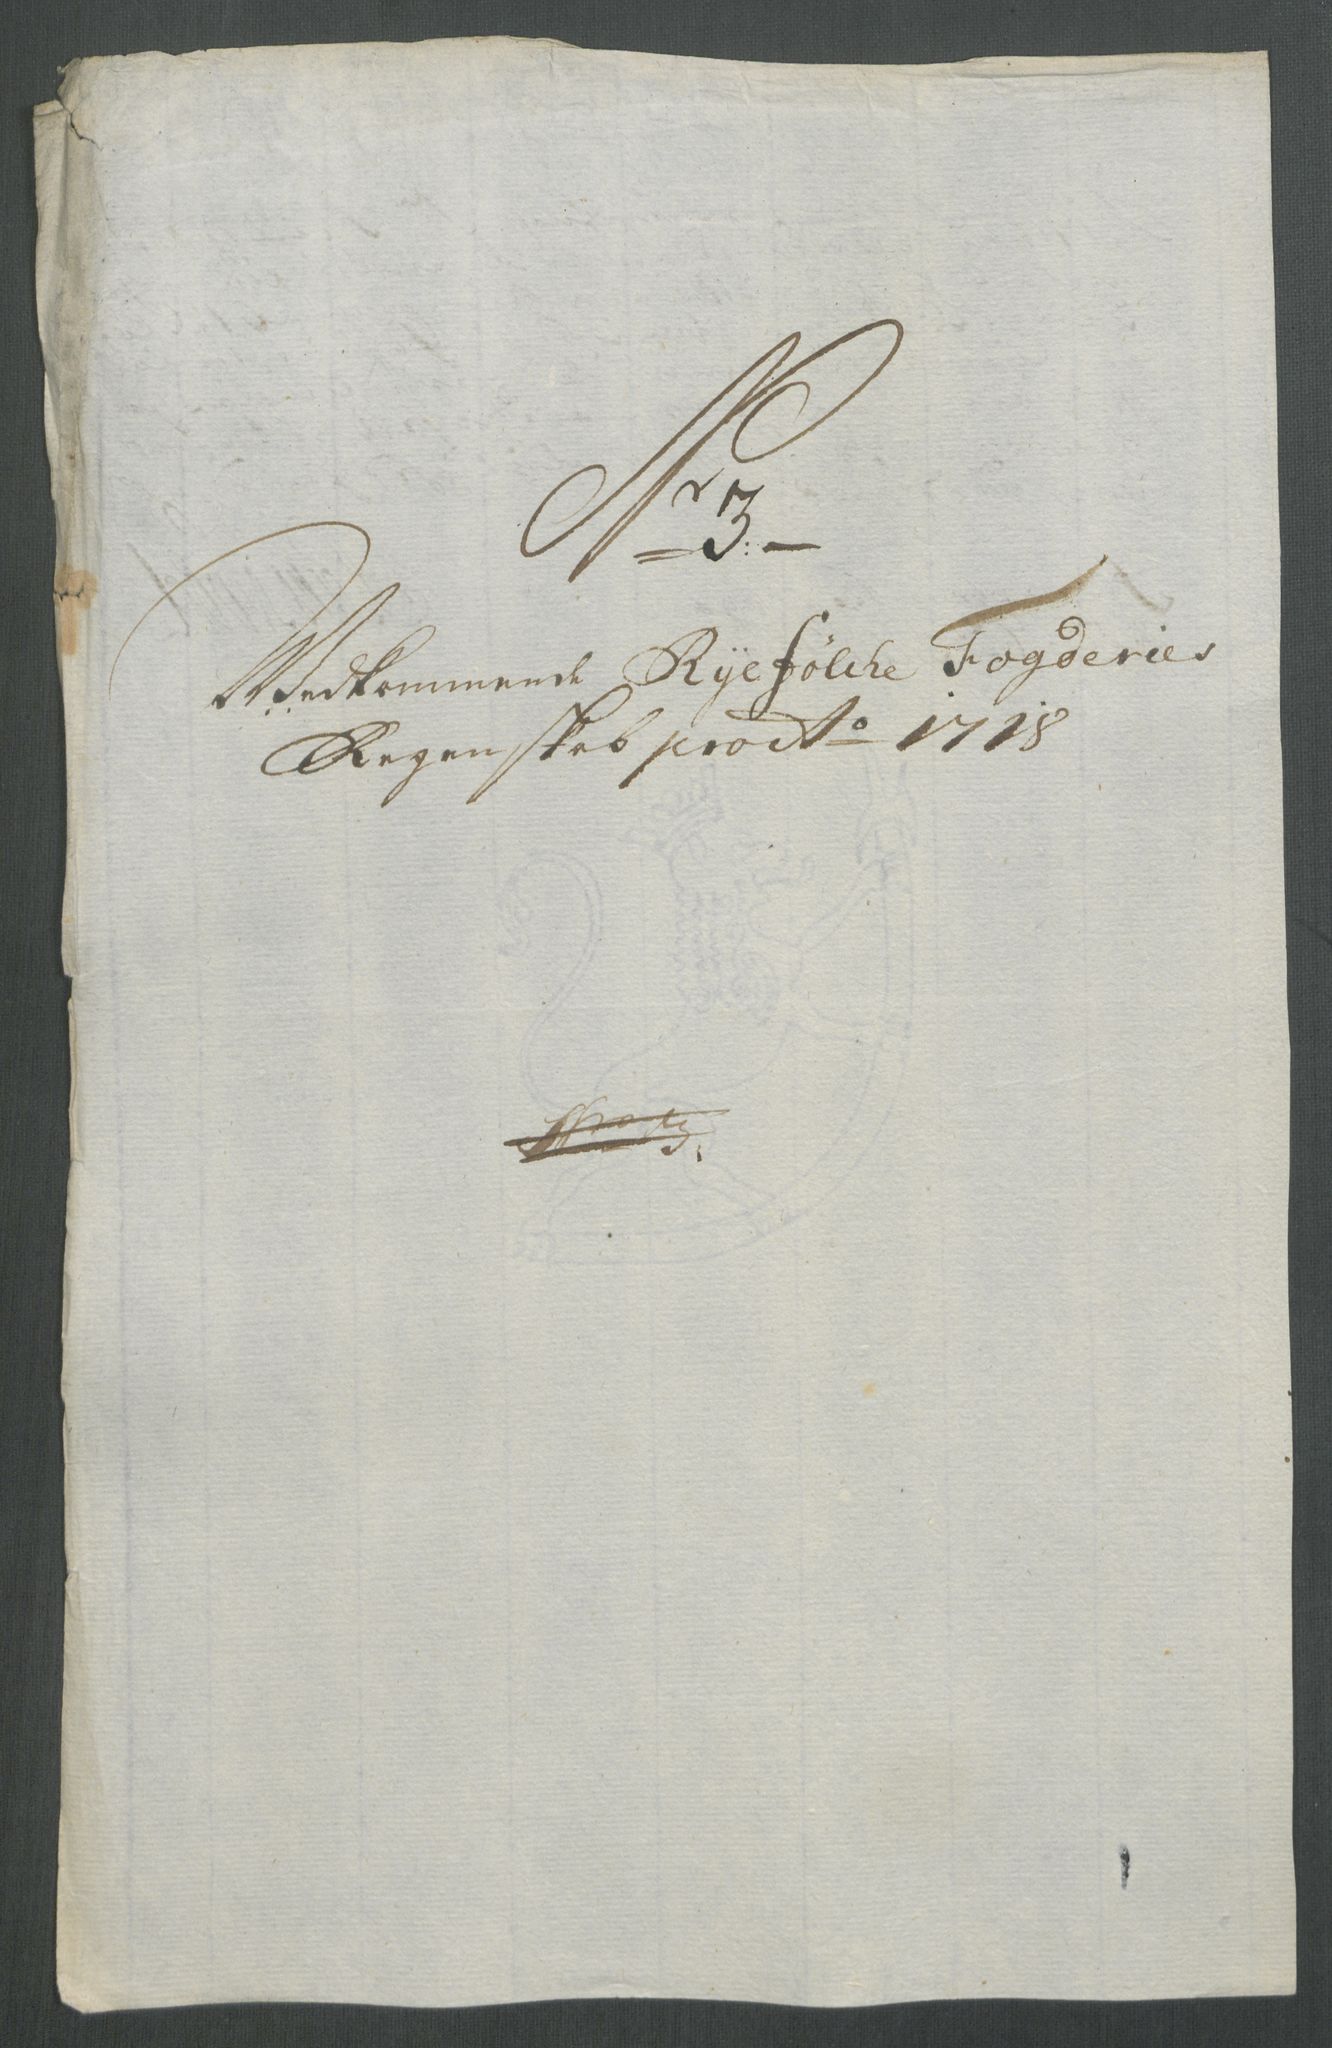 Nr 3.
Vedkommende Ryefölche Fogderies
Regenskab pro Ao 1718